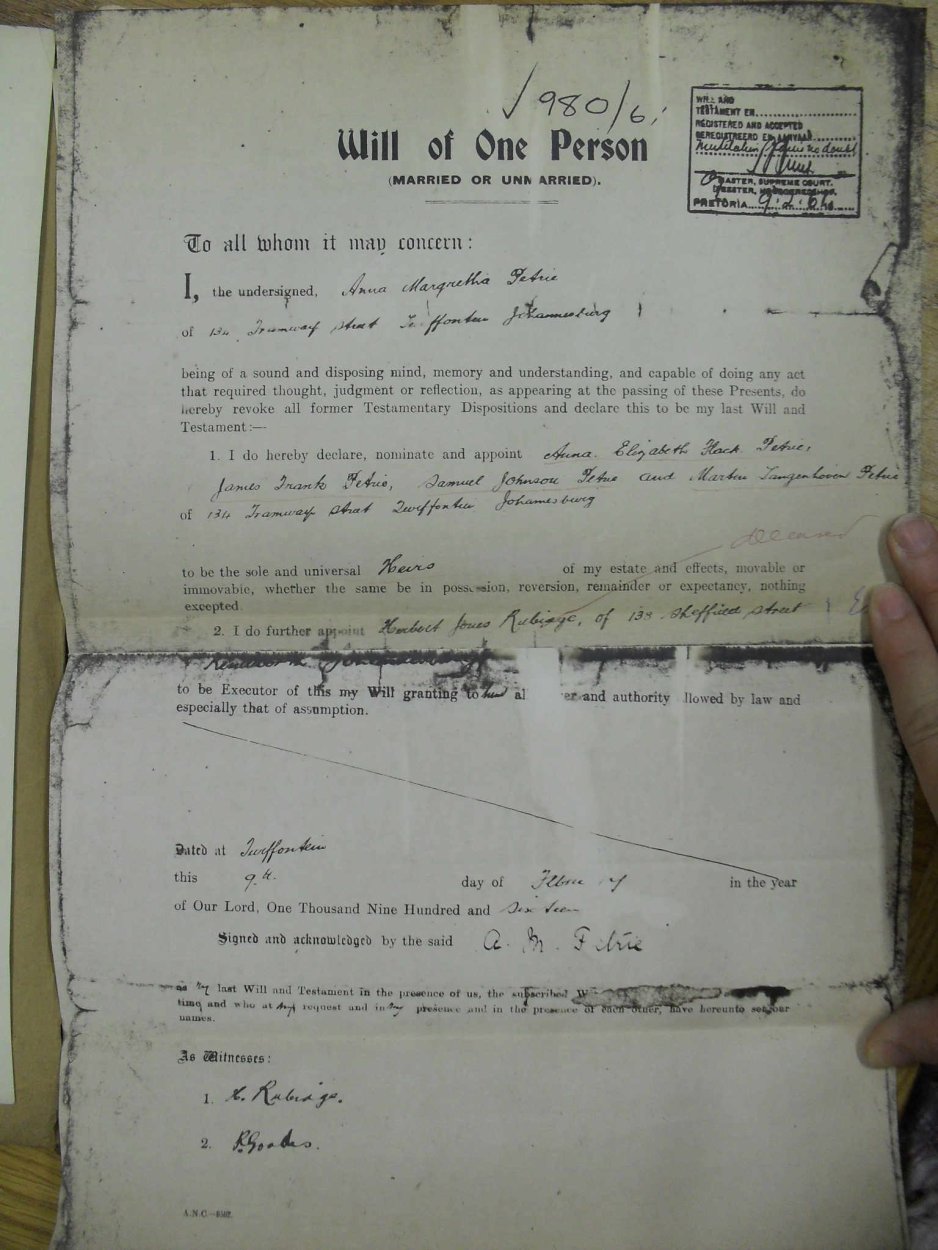 √ 980/61
Will of One Person
(MARRIED OR UNMARRIED).
WILL AND
TESTAMENT EN
REGISTERED AND ACCEPTED
GEREGISTREERD EN AANVAAR
MASTER, SUPREME COURT.
MEESTER, HOOGGEREGSHOF.
PRETORIA
To all whom it may concern:
I, the undersigned, Anna Margretha Petrie
of 134 Tramway Street Johannesburg
being of a sound and disposing mind, memory and understanding, and capable of doing any act
that required thought, judgment or reflection, as appearing at the passing of these Presents, do
hereby revoke all former Testamentary Dispositions and declare this to be my last Will and
Testament:—
1. I do hereby declare, nominate and appoint Anna Elizabeth Petrie,
James Frank Petrie, Samuel Johnson Petrie and Martin Langenhoven Petrie
of 134 Tramway Street Turffontein Johannesburg
deceased
to be the sole and universal Heirs of my estate and effects, movable or
immovable, whether the same be in possession, reversion, remainder or expectancy, nothing
excepted.
2. I do further appoint Herbert Jones Rubidge, of 138 Sheffield Street
to be Executor of this my Will granting to him al er and authority llowed by law and
especially that of assumption.
Dated at Turffontein
this 9th. day of in the year
of Our Lord, One Thousand Nine Hundred and sixteen
Signed and acknowledged by the said A. M. Petrie
as my last Will and Testament in the presence of us, the subscribed W
time and who at my request and in my presence and in the presence of each other, have hereunto set our
names.
As Witnesses:
1. H. Rubidge.
2.
A.N.C.